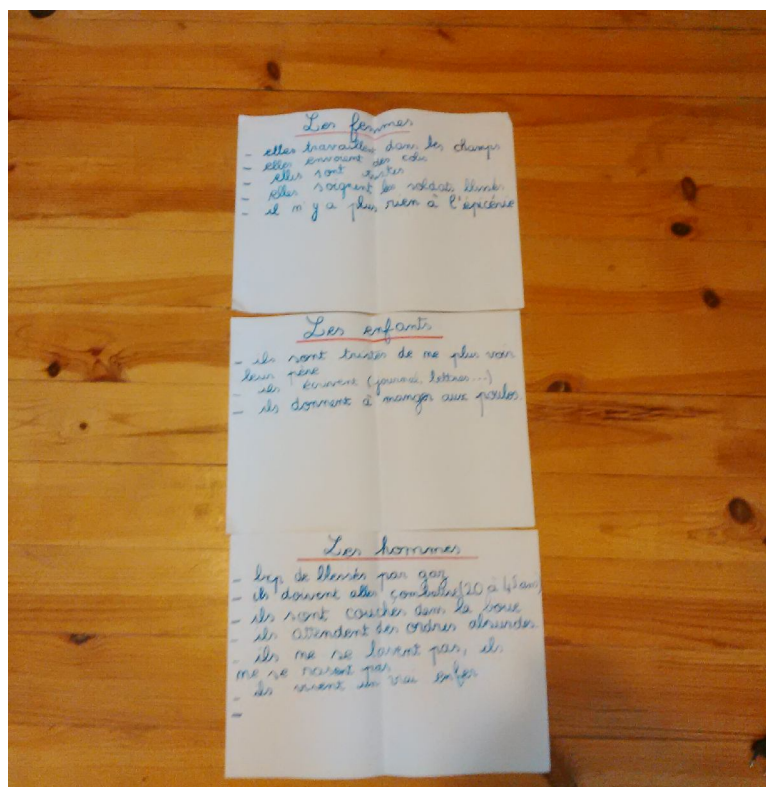 Les femmes
- elles travaillent dans les champs
- elles envoient des colis
- elles sont tristes
- elles soignent les soldats blessés
- il n'y a plus rien à l'épicerie
Les enfants
- ils sont tristes de ne plus voir
leur père
- ils écrivent (journal, lettres...)
- ils donnent à manger aux poules
Les hommes
- bcp de blessés par gaz
- ils doivent aller combattre (20 à 45 ans)
- ils sont couchés dans la boue
- ils attendent des ordres absurdes
- ils ne se lavent pas, ils
ne se rasent pas
- ils vivent un vrai enfer
-